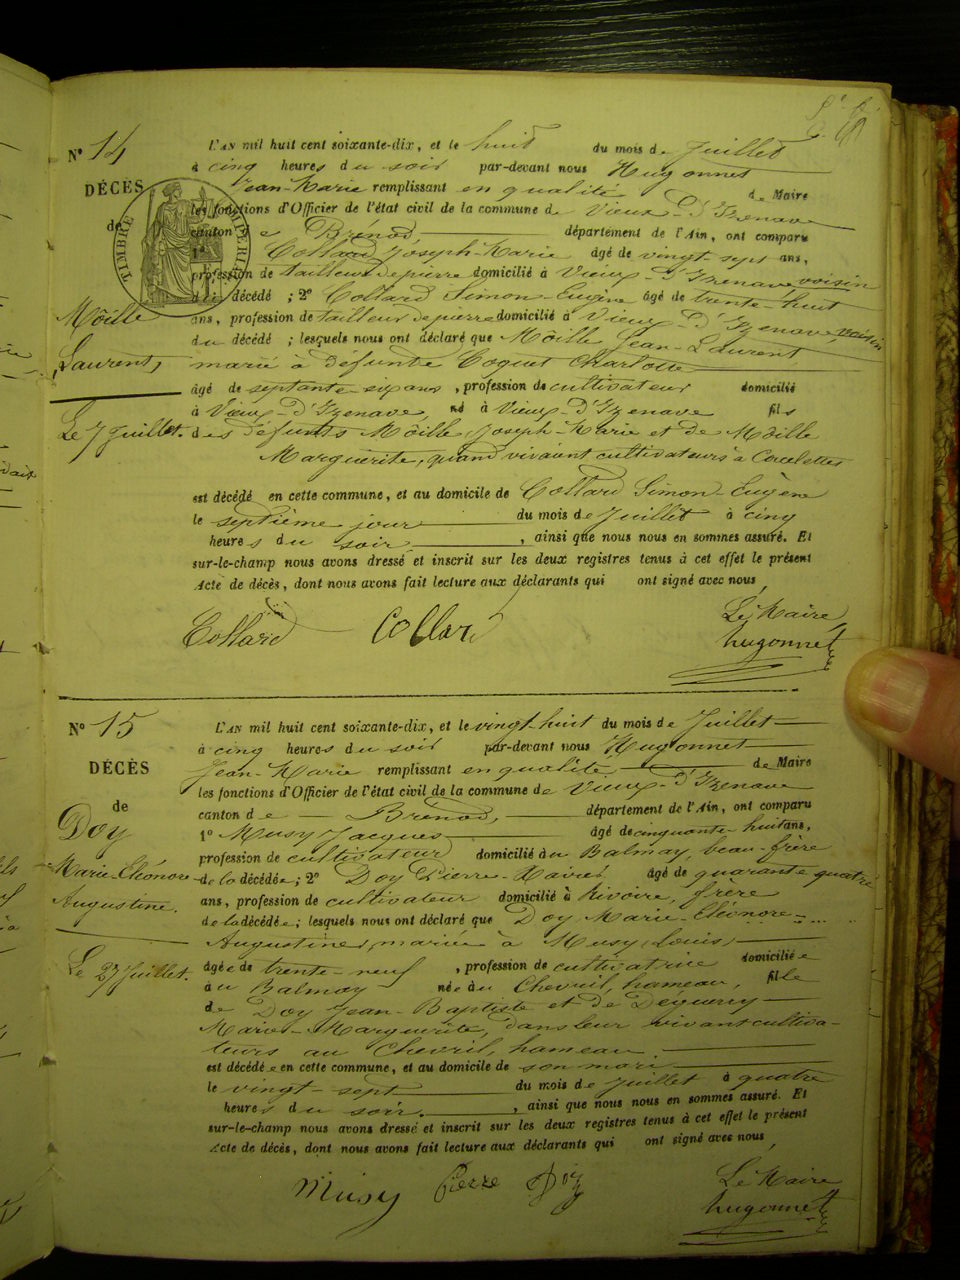 Nº 14
DÉCÈS
de
TIMBRE IMPÉRIAL
Môille
Laurent,
Le 7 Juillet.
L'AN mil huit cent soixante-dix, et le huit du mois de Juillet
à cinq heures du soir par-devant nous Hugonnet
Jean-Marie remplissant en qualité de Maire
les fonctions d'Officier de l'état civil de la commune de Vieux-D'Izenave
canton de Brenod, département de l'Ain, ont comparu
1º Collard Joseph-Marie âgé de vingt sept ans,
profession de tailleur de pierre domicilié à Vieux-D'Izenave voisin
du décédé ; 2º Collard Simon-Eugène âgé de trente-huit
ans, profession de tailleur de pierre domicilié à Vieux-D'Izenave, voisin
du décédé ; lesquels nous ont déclaré que Môille Jean-Laurent
marié à défunte Coquet Charlotte
âgé de septante-six ans, profession de cultivateur domicilié
à Vieux-D'Izenave, né à Vieux-D'Izenave fils
des défunts Môille Joseph-Marie et de Môille
Marguerite, quand vivaient cultivateurs à Corcelettes
est décédé en cette commune, et au domicile de Collard Simon-Eugène
le septième jour du mois de Juillet à cinq
heures du soir, ainsi que nous nous en sommes assuré. Et
sur-le-champ nous avons dressé et inscrit sur les deux registres tenus à cet effet le présent
Acte de décès, dont nous avons fait lecture aux déclarants qui ont signé avec nous,
Collard Collard Le Maire
hugonnet
Nº 15
DÉCÈS
de
Doy
Marie-Eléonore
Augustine.
Le 27 Juillet.
L'AN mil huit cent soixante-dix, et le vingt-huit du mois de Juillet
à cinq heures du soir par-devant nous Hugonnet
Jean-Marie remplissant en qualité de Maire
les fonctions d'Officier de l'état civil de la commune de Vieux-D'Izenave
canton de Brenod, département de l'Ain, ont comparu
1º Musy Jacques âgé de cinquante-huit ans,
profession de cultivateur domicilié au Balmay, beau-frère
de la décédée ; 2º Doy Pierre-Xavier âgé de quarante quatre
ans, profession de cultivateur domicilié à Rivoire, frère
de la décédée ; lesquels nous ont déclaré que Doy Marie-Eléonore-
Augustine, mariée à Musy Louis,
âgée de trente-neuf, profession de cultivatrice domiciliée
au Balmay née au Chevril, hameau, fille
de Doy Jean-Baptiste et de Déguerry
Marie-Marguerite, dans leur vivant cultiva-
teurs au Chevril hameau.
est décédée en cette commune, et au domicile de son mari
le vingt-sept du mois de Juillet à quatre
heures du soir., ainsi que nous nous en sommes assuré. Et
sur-le-champ nous avons dressé et inscrit sur les deux registres tenus à cet effet le présent
Acte de décès, dont nous avons fait lecture aux déclarants qui ont signé avec nous,
Musy Pierre Doy Le Maire
hugonnet